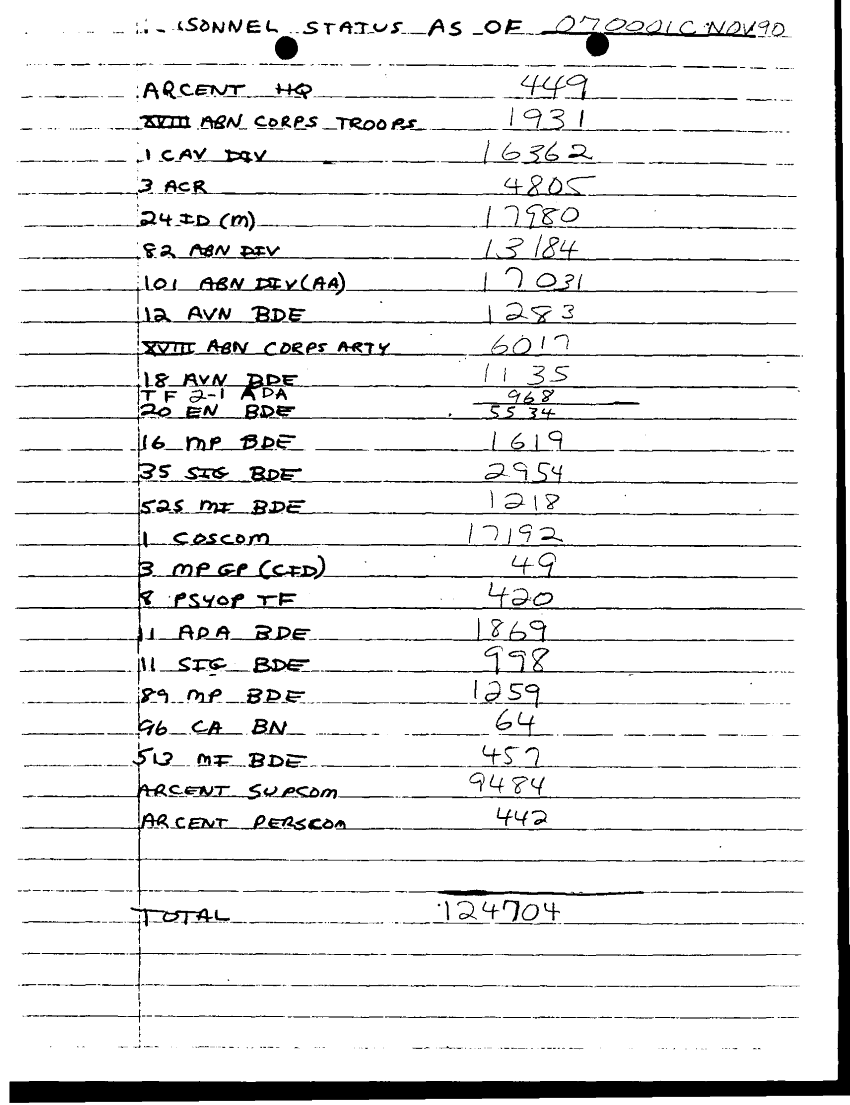 SONNEL STATUS AS OF 070001C NOV90
ARCENT HQ 449
XVIII ABN CORPS TROOPS 1931
1 CAV DIV 16362
3 ACR 4805
24 ID (M) 17980
82 ABN DIV 13184
101 ABN DIV (AA) 17031
12 AVN BDE 1283
XVIII ABN CORPS ARTY 6017
18 AVN BDE 1135
TF 2-1 ADA 968
20 EN BDE 5534
16 MP BDE 1619
35 SIG BDE 2954
525 MI BDE 1218
1 COSCOM 17192
3 MP GP (CID) 49
8 PSYOP TF 420
11 ADA BDE 1869
11 SIG BDE 998
89 MP BDE 1259
96 CA BN 64
513 MI BDE 457
ARCENT SUPCOM 9484
ARCENT PERSCOM 442
TOTAL 124704